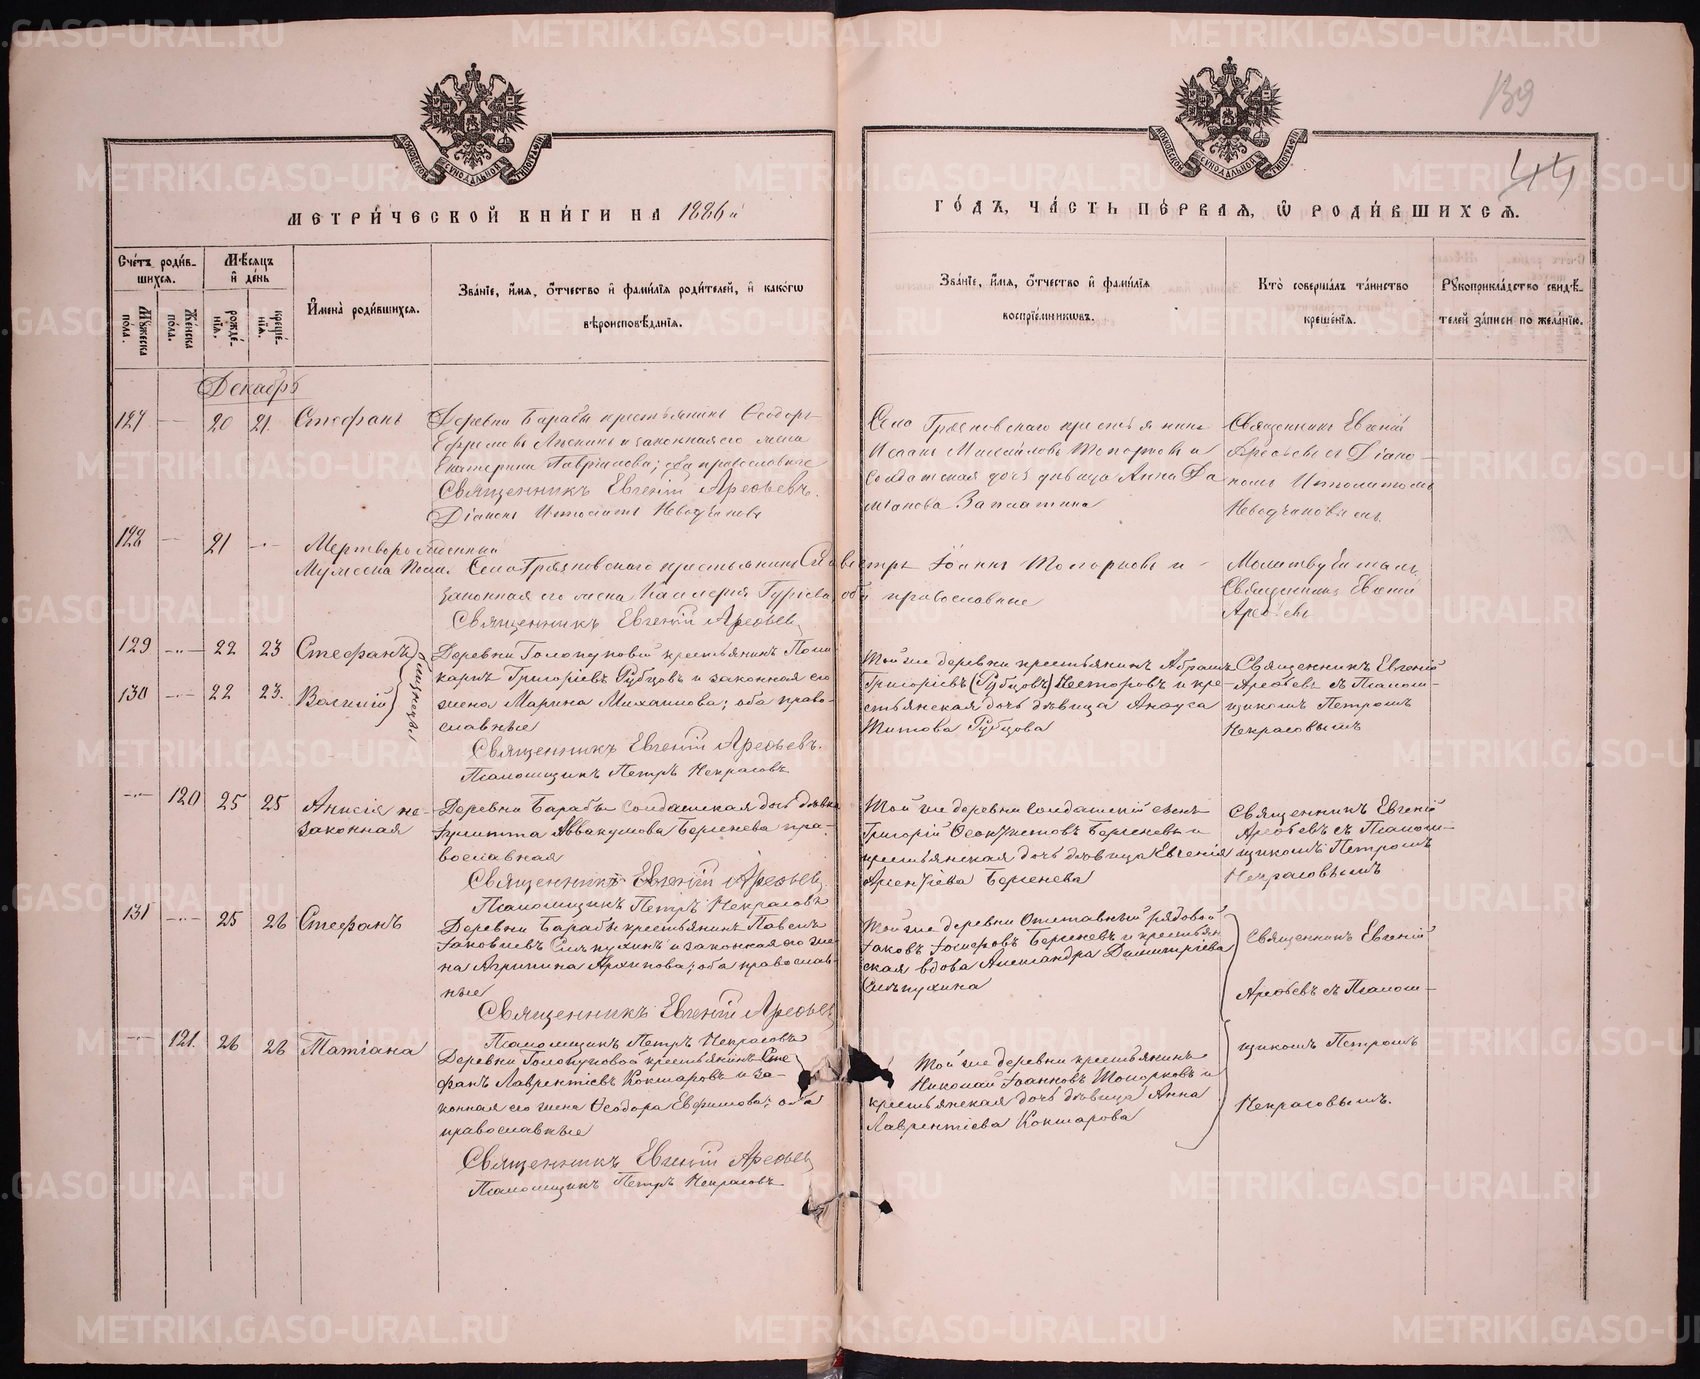 139
44
МЕТРИ́ЧЕСКОЙ КНИ́ГИ НА 1886й
ГО́ДЪ, ЧА́СТЬ ПЕ́РВАЯ, Ѡ РОДИ́ВШИХСЯ.
Сче́тъ роди́в-
шихся.
Мѣ́сяцъ
и де́нь
Му́жеска по́ла.
Же́нска по́ла.
рожде́-
нїя.
креще́-
нїя.
И҆мена̀ роди́вшихся.
Зва́нїе, и҆́мя, ѻ҆́тчество и҆ фами́лїя роди́телей, и҆ како́гѡ
вѣроисповѣ́данїя.
Зва́нїе, и҆́мя, ѻ҆́тчество и҆ фами́лїя
воспрїе́мниковъ.
Кто̀ соверша́лъ та́инство
креще́нїя.
Рꙋкоприкла́дство свидѣ́-
телей за́писи по жела́нїю.
Декабрь
127 — 20 21. Стефанъ
Деревни Барабы крестьянинъ Ѳеодоръ
Ефремовъ и законная его жена
Екатерина Гаврiилова; оба православные
Священникъ Евгенiй Арефьевъ.
Дiаконъ Ипполитъ
Села Грязновскаго крестьянинъ
Исаакъ Михайловъ Топорковъ и
Солдатская дочь дѣвица Анна Да
мiанова Заплатина
Священникъ Евгенiй
Арефьевъ съ Дiако-
номъ Ипполитомъ
128 — 21 — Мертворожденный
Мужеска пола. Села Грязновскаго крестьянинъ Сильвестръ Iоанновъ Топорковъ и
законная его жена Гурiева, оба православные
Священникъ Евгенiй Арефьевъ
Молитвовалъ
Священникъ Евгенiй
Арефьевъ
129 — 22 23 Стефанъ
130 — 22 23. Василiй
близнецы
Деревни Голопуповой крестьянинъ Поли
карпъ Григорiевъ Рубцовъ и законная его
жена Марина Михаилова; оба право-
славные
Священникъ Евгенiй Арефьевъ.
Псаломщикъ Петръ Некрасовъ
Той же деревни крестьянинъ Абрамъ
Григорiевъ (Рубцовъ) Несторовъ и кре-
стьянская дочь дѣвица Анѳуса
Титова Рубцова
Священникъ Евгенiй
Арефьевъ съ Псалом-
щикомъ Петромъ
Некрасовымъ
— 120 25 25 Анисiя не-
законная
Деревни Барабы Солдатская дочь дѣвка
Аввакумова Берсенева пра-
вославная
Священникъ Евгенiй Арефьевъ
Псаломщикъ Петръ Некрасовъ
Той же деревни Солдатскiй сынъ
Григорiй Берсеневъ и
крестьянская дочь дѣвица Евгенiя
Арсенiева Берсенева
Священникъ Евгенiй
Арефьевъ съ Псалом-
щикомъ Петромъ
Некрасовымъ
131 — 25 26 Стефанъ
Деревни Барабы крестьянинъ Павелъ
Iаковлевъ Слѣпухинъ и законная его же
на Агрипина Архипова; оба православ-
ные
Священникъ Евгенiй Арефьевъ
Псаломщикъ Петръ Некрасовъ
Той же деревни Отставный рядовой
Iаковъ Iосифовъ Берсеневъ и крестьян
ская вдова Александра Димитрiева
Слѣпухина
Священникъ Евгенiй
Арефьевъ съ Псалом-
щикомъ Петромъ
Некрасовымъ.
— 121. 26 26 Татiана
Деревни Голопуповой крестьянинъ Сте
фанъ Лаврентiевъ Кокшаровъ и за-
конная его жена Ѳеодора Евфимова; оба
православные
Священникъ Евгенiй Арефьевъ
Псаломщикъ Петръ Некрасовъ
Той же деревни крестьянинъ
Николай Iоанновъ Топорковъ и
крестьянская дочь дѣвица Анна
Лаврентiева Кокшарова
METRIKI.GASO-URAL.RU